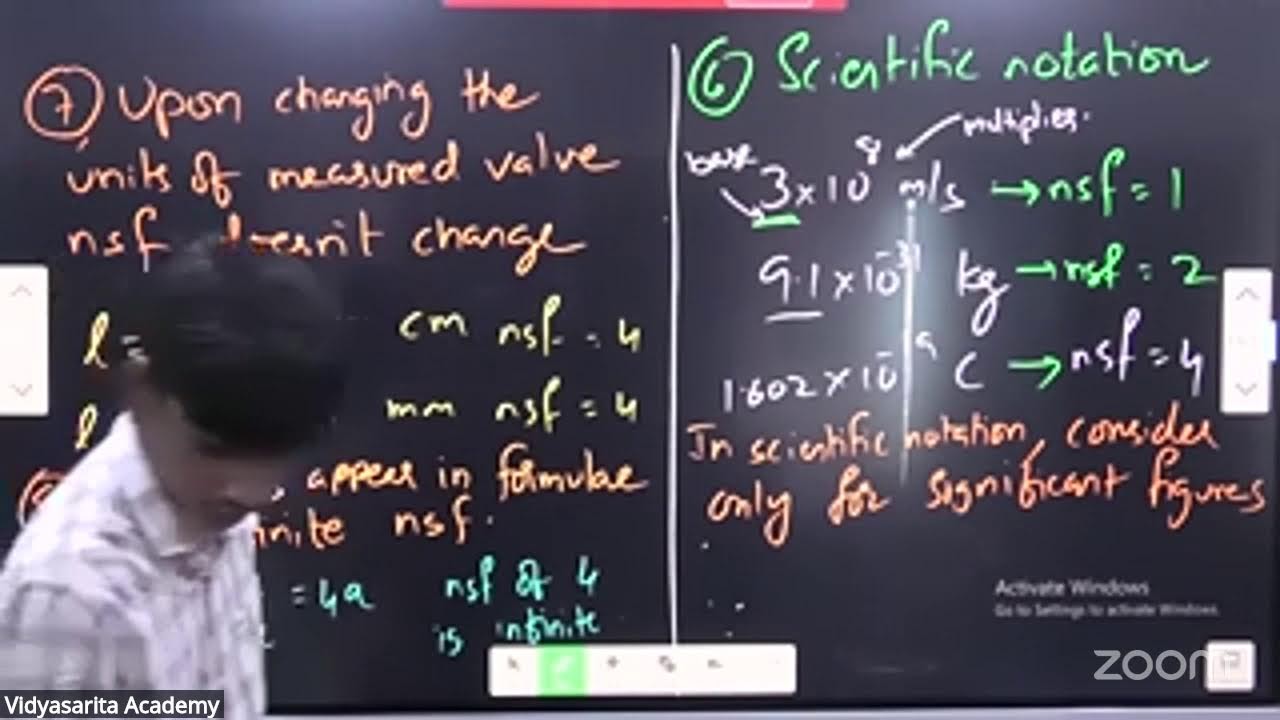 7 Upon changing the
units of measured value
nsf doesn't change
l =
cm nsf = 4
l
mm nsf = 4
appear in formulae
nsf.
= 4a nsf of 4
is infinite
6 Scientific notation
multiplier.
base
3 × 10⁸ m/s → nsf = 1
9.1 × 10⁻³¹ kg → nsf = 2
1.602 × 10⁻ ⁹ C → nsf = 4
In scientific notation, consider
only for significant figures
Activate Windows
Go to Settings to activate Windows.
zoom
Vidyasarita Academy